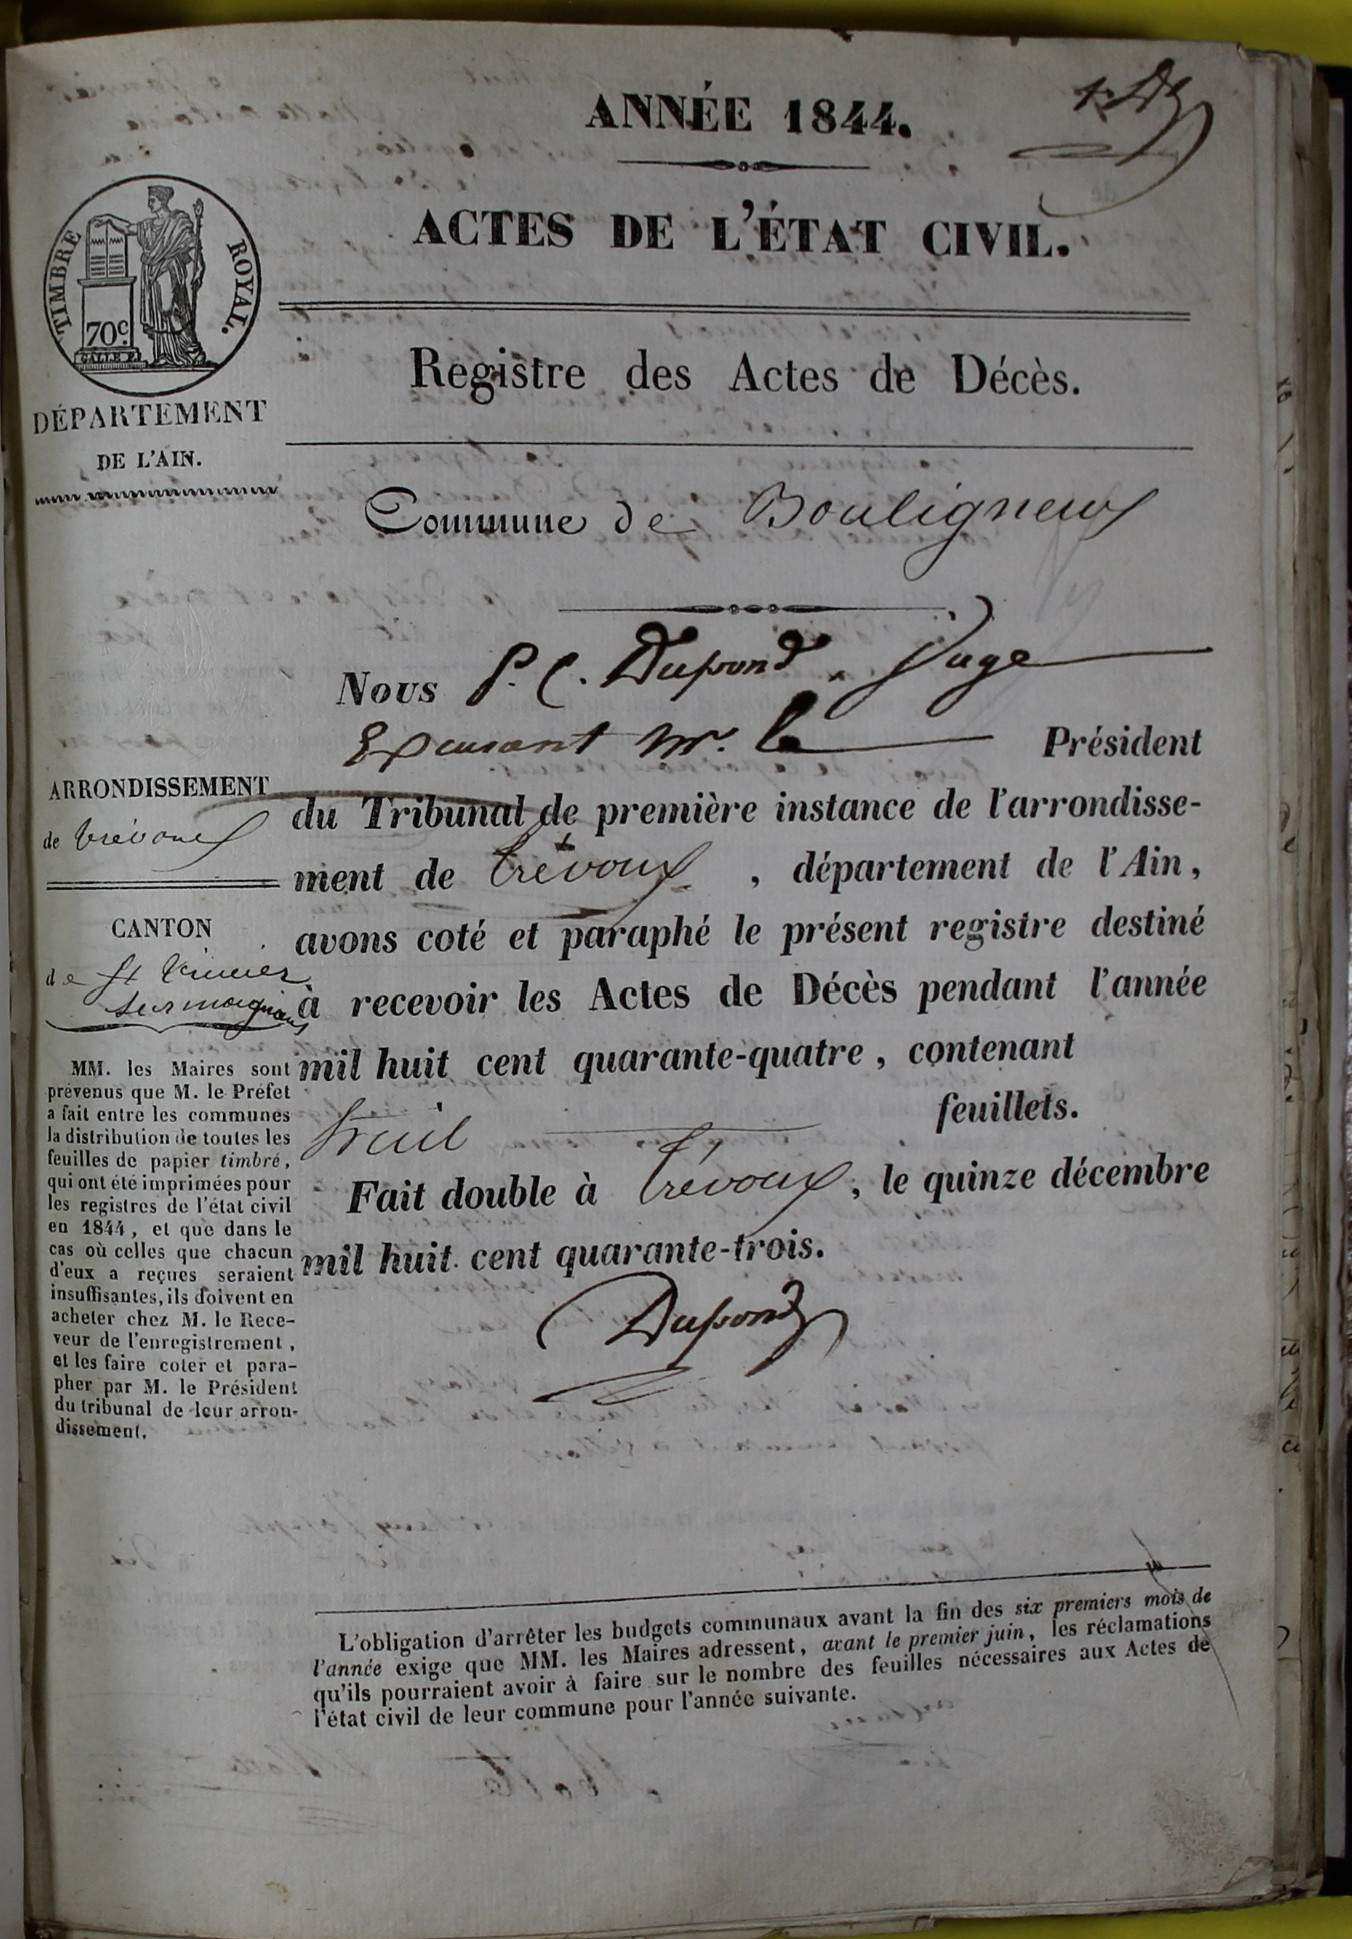 ANNÉE 1844.
ACTES DE L'ÉTAT CIVIL.
TIMBRE ROYAL.
70c.
GALLE F.
DÉPARTEMENT
DE L'AIN.
Registre des Actes de Décès.
Commune de Bouligneux
Nous P. C. Dupond, Juge
Excusant Mr. le Président
du Tribunal de première instance de l'arrondisse-
ment de trévoux, département de l'Ain,
avons coté et paraphé le présent registre destiné
à recevoir les Actes de Décès pendant l'année
mil huit cent quarante-quatre, contenant
huit feuillets.
Fait double à trévoux, le quinze décembre
mil huit cent quarante-trois.
Dupond
ARRONDISSEMENT
de trévoux
CANTON
de St trivier
sur moignans
MM. les Maires sont
prévenus que M. le Préfet
a fait entre les communes
la distribution de toutes les
feuilles de papier timbré,
qui ont été imprimées pour
les registres de l'état civil
en 1844, et que dans le
cas où celles que chacun
d'eux a reçues seraient
insuffisantes, ils doivent en
acheter chez M. le Rece-
veur de l'enregistrement,
et les faire coter et para-
pher par M. le Président
du tribunal de leur arron-
dissement.
L'obligation d'arrêter les budgets communaux avant la fin des six premiers mois de
l'année exige que MM. les Maires adressent, avant le premier juin, les réclamations
qu'ils pourraient avoir à faire sur le nombre des feuilles nécessaires aux Actes de
l'état civil de leur commune pour l'année suivante.